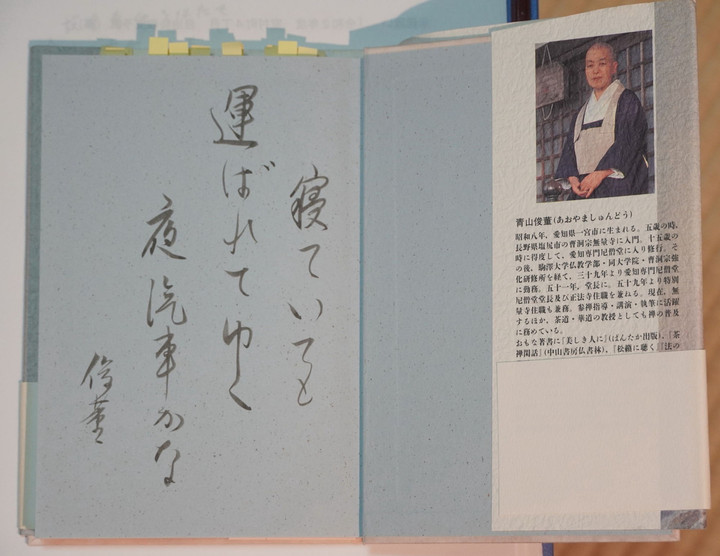 寝ていても
運ばれてゆく
夜汽車かな
俊董
青山俊董(あおやましゅんどう)
昭和八年、愛知県一宮市に生まれる。五歳の時、
長野県塩尻市の曹洞宗無量寺に入門。十五歳の
時に得度して、愛知専門尼僧堂に入り修行。そ
の後、駒澤大学仏教学部・同大学院・曹洞宗教
化研修所を経て、三十九年より愛知専門尼僧堂
に勤務。五十一年、堂長に。五十九年より特別
尼僧堂堂長及び正法寺住職を兼ねる。現在、無
量寺住職も兼務。参禅指導・講演・執筆に活躍
するほか、茶道・華道の教授としても禅の普及
に務めている。
おもな著書に『美しき人に』(ぱんたか出版)、『茶
禅閑話』(中山書房仏書林)、『松籟に聴く』『法の